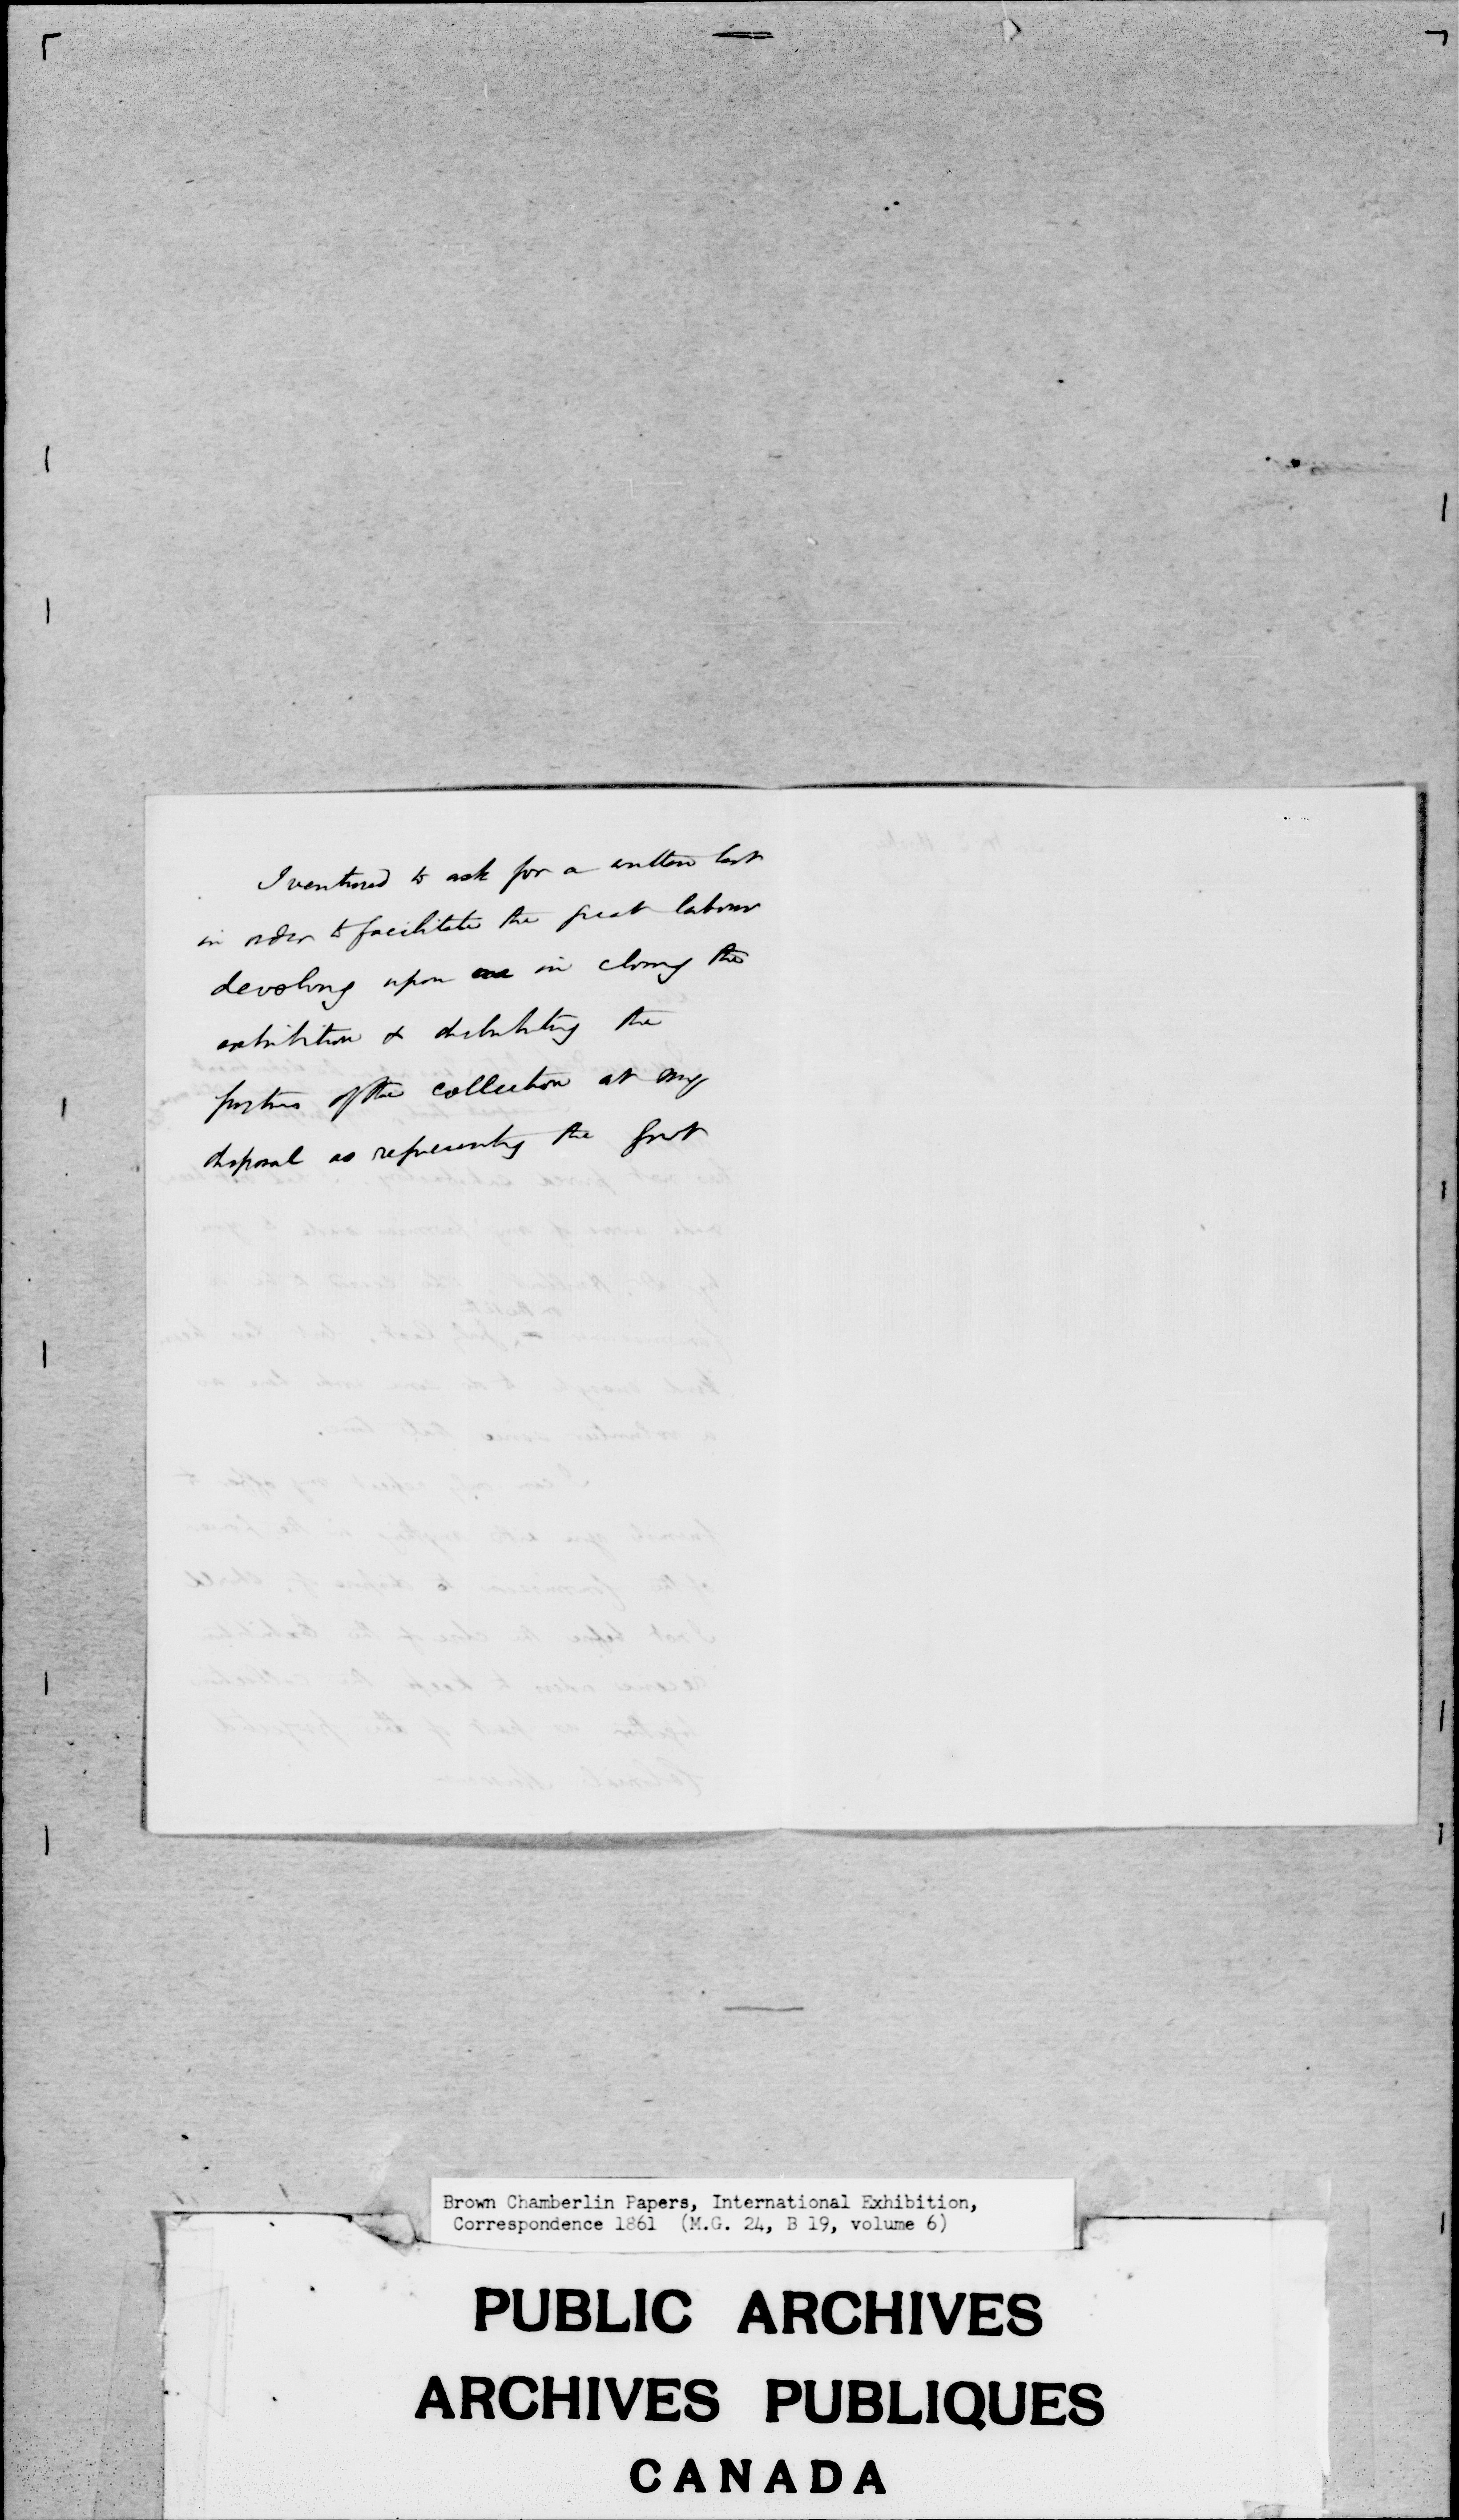 I ventured to ask for a written list
in order to facilitate the great labour
devolving upon me in closing the
exhibition & distributing the
portions of the collection at my
disposal as representing the Govt
Brown Chamberlin Papers, International Exhibition,
Correspondence 1861 (M.G. 24, B 19, volume 6)
PUBLIC ARCHIVES
ARCHIVES PUBLIQUES
CANADA